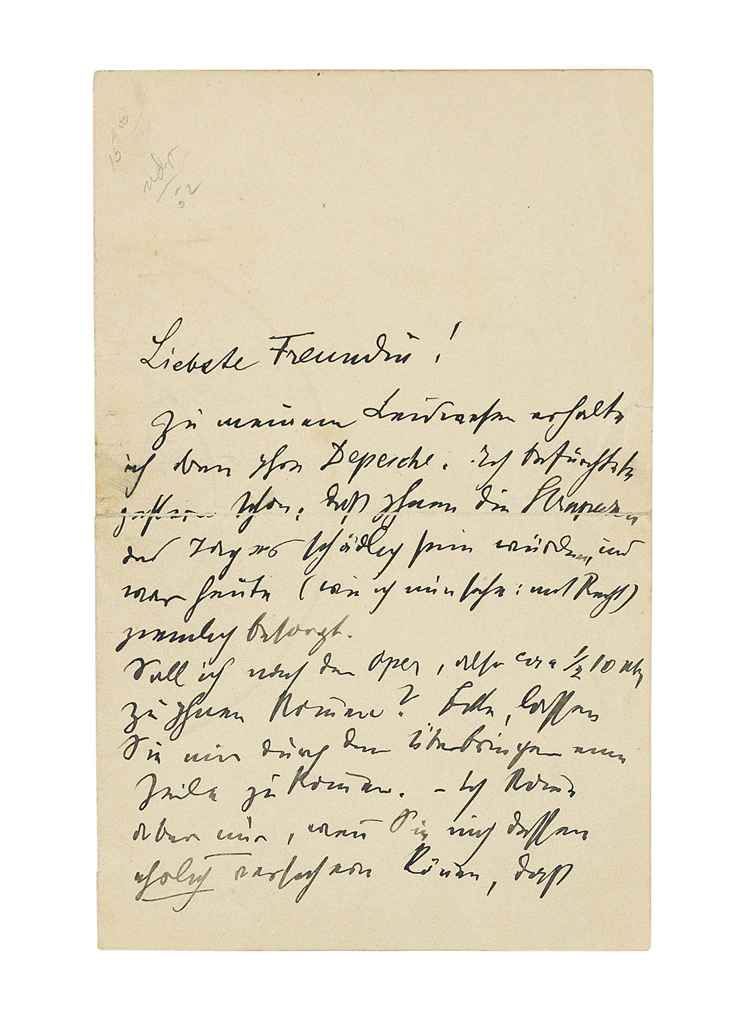 Liebste Freundin!
Zu meinem Leidwesen erhalte
ich eben Ihre Depesche. Ich befürchtete
gestern schon, daß Ihnen die Strapazen
des Tages schädlich sein würden, und
war heute (wie ich nun sehe: mit Recht)
ziemlich besorgt.
Soll ich nach der Oper, also cca ½ 10 Uhr
zu Ihnen kommen? Bitte, lassen
Sie mir durch den Überbringer eine
Zeile zukommen. – Ich komme
aber nur, wenn Sie mich dessen
ehrlich versichern können, daß